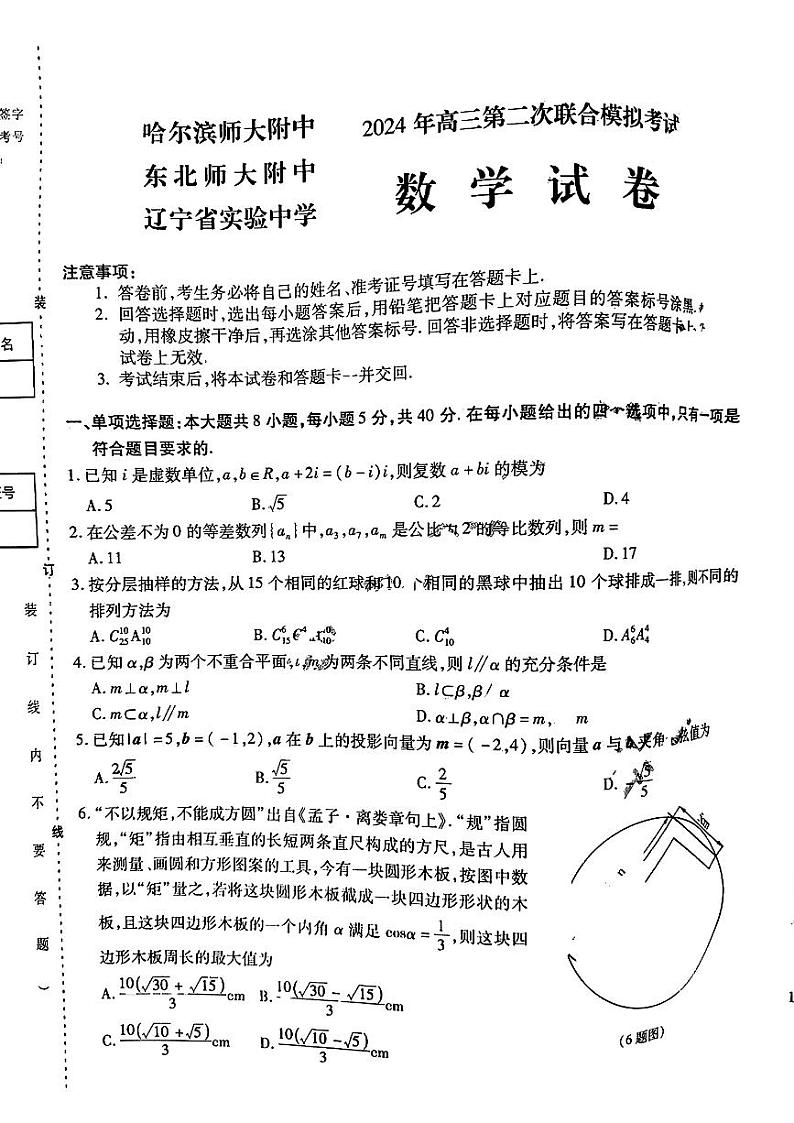 签字
考号
名
证号
装
订
线
装
订
线
内
不
要
答
题
)
哈尔滨师大附中
东北师大附中
辽宁省实验中学
2024年高三第二次联合模拟考试
数学试卷
注意事项:
1. 答卷前,考生务必将自己的姓名、准考证号填写在答题卡上.
2. 回答选择题时,选出每小题答案后,用铅笔把答题卡上对应题目的答案标号涂黑.
动,用橡皮擦干净后,再选涂其他答案标号.回答非选择题时,将答案写在答题卡上.
试卷上无效.
3. 考试结束后,将本试卷和答题卡一并交回.
一、单项选择题:本大题共8小题,每小题5分,共40分.在每小题给出的四个选项中,只有一项是
符合题目要求的.
1.已知i是虚数单位,a,b∈R,a+2i=(b-i)i,则复数a+bi的模为
A.5 B.√5 C.2 D.4
2.在公差不为0的等差数列{aₙ}中,a₃,a₇,aₘ是公比为2的等比数列,则m=
A.11 B.13 D.17
3.按分层抽样的方法,从15个相同的红球和10个相同的黑球中抽出10个球排成一排,则不同的
排列方法为
A.C₂₅¹⁰A₁₀¹⁰ B.C₁₅⁶C⁴ C.C₁₀⁴ D.A₆⁶A₄⁴
4.已知α,β为两个不重合平面,l,m为两条不同直线,则l∥α的充分条件是
A.m⊥α,m⊥l B.l⊂β,β/ α
C.m⊂α,l∥m D.α⊥β,α∩β=m, m
5.已知|a|=5,b=(-1,2),a在b上的投影向量为m=(-2,4),则向量a与b夹角 弦值为
A.2√5/5 B.√5/5 C.2/5 D.-√5/5
6.“不以规矩,不能成方圆”出自《孟子·离娄章句上》.“规”指圆
规,“矩”指由相互垂直的长短两条直尺构成的方尺,是古人用
来测量、画圆和方形图案的工具,今有一块圆形木板,按图中数
据,以“矩”量之,若将这块圆形木板截成一块四边形形状的木
板,且这块四边形木板的一个内角α满足cosα=1/3,则这块四
边形木板周长的最大值为
A.10(√30+√15)/3 cm B.10(√30-√15)/3 cm
C.10(√10+√5)/3 cm D.10(√10-√5)/3 cm
5m
n
(6题图)
1